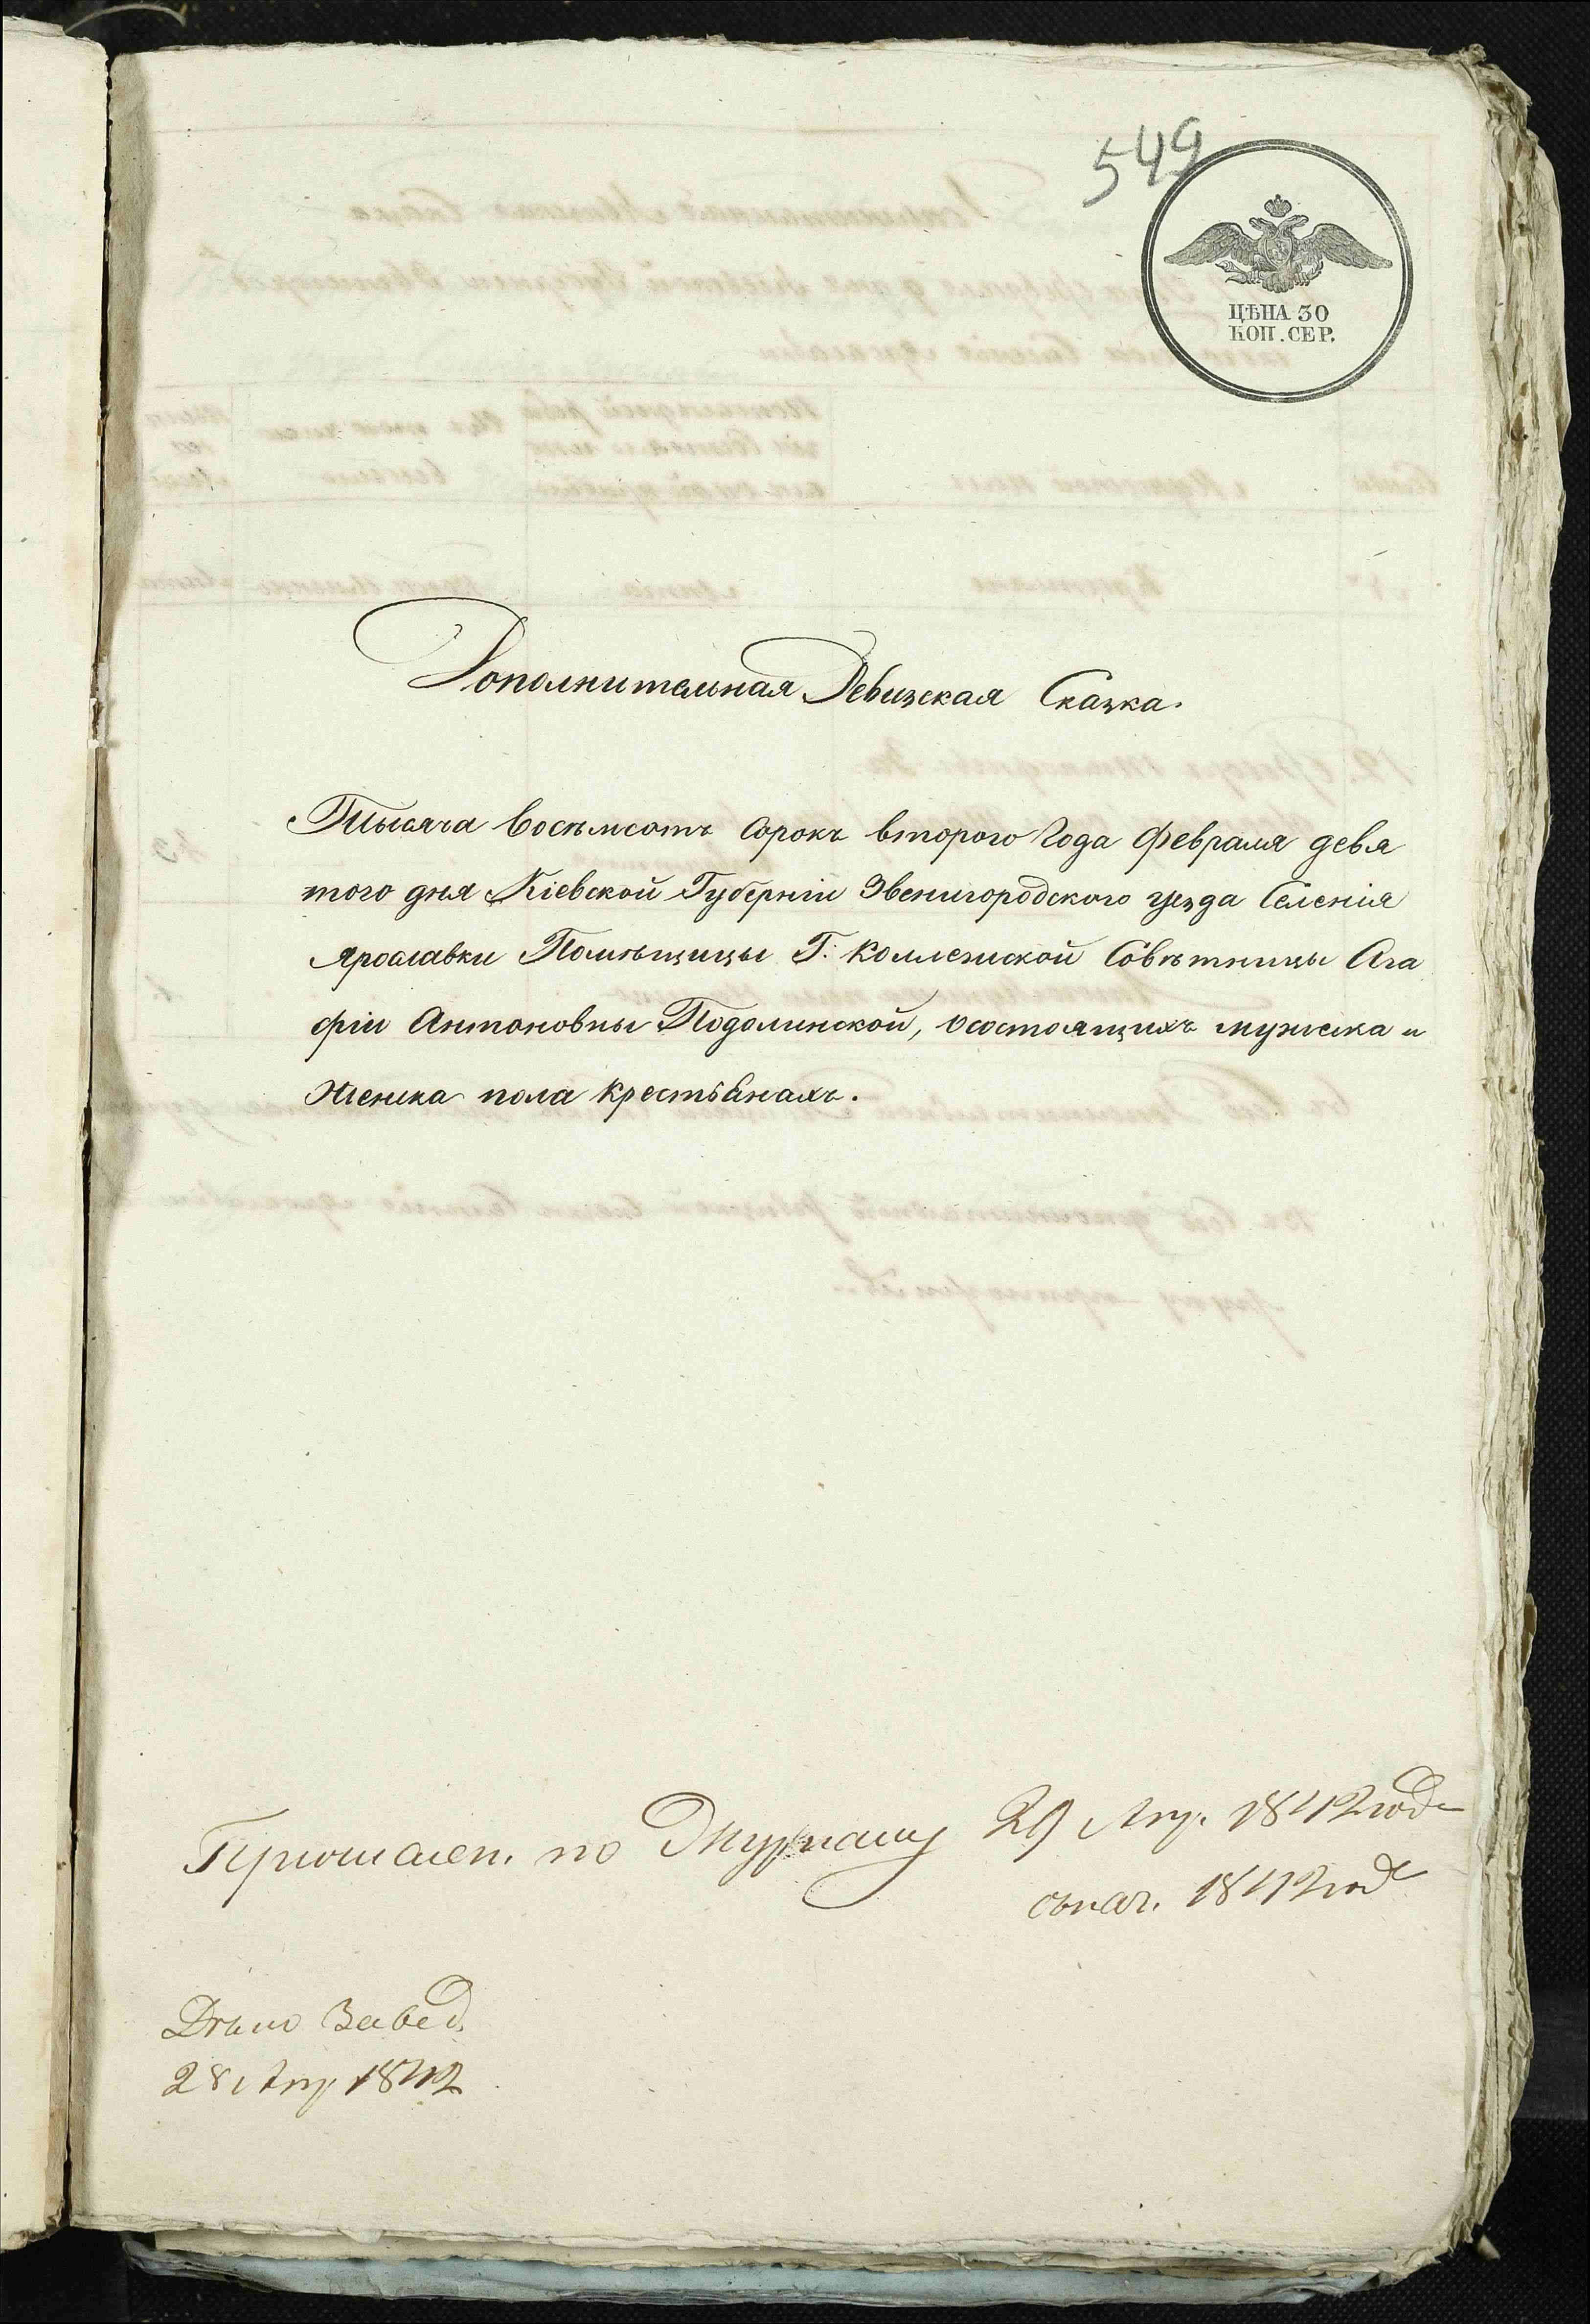 549
ЦѢНА 30
КОП. СЕР.
Дополнительная Ревизская Сказка.
Тысяча восѣмсотъ сорокъ второго Года февраля девя
того дня Кіевской Губерніи Звенигородского уезда Селенія
Ярославки Помѣщицы Г: Коллежской Совѣтницы Ага
фіи Антоновны Подолинской, о состоящихъ мужеска и
женска пола крестьянахъ.
по 29 Апр. 1842 года
1842 год
Дѣло Завед.
28 Апр 1842